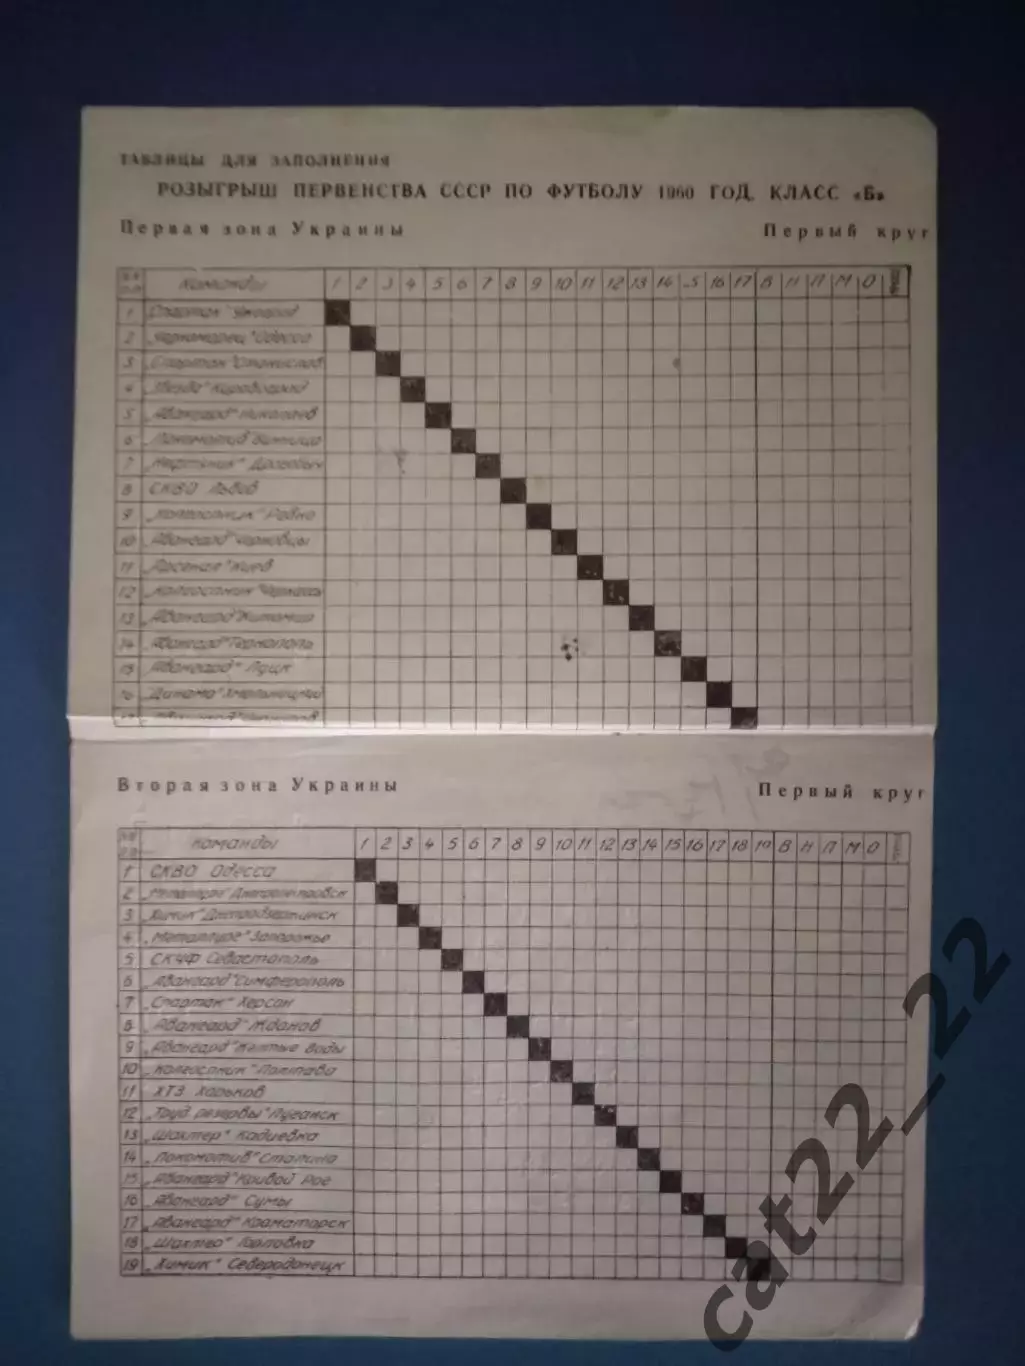 ТАБЛИЦЫ ДЛЯ ЗАПОЛНЕНИЯ
РОЗЫГРЫШ ПЕРВЕНСТВА СССР ПО ФУТБОЛУ 1960 ГОД. КЛАСС «Б»
Первая зона Украины Первый круг
Команды 1 2 3 4 5 6 7 8 9 10 11 12 13 14 15 16 17 В Н П М О
1 „Спартак" Ужгород
2 „Черноморец" Одесса
3 „Спартак" Станислав
4 „Звезда" Кировоград
5 „Авангард" Николаев
6 „Локомотив" Винница
7 „Нефтяник" Дрогобыч
8 СКВО Львов
9 „Колгоспник" Ровно
10 „Авангард" Черновцы
11 „Арсенал" Киев
12 „Колгоспник" Черкассы
13 „Авангард" Житомир
14 „Авангард" Тернополь
15 „Авангард" Луцк
16 „Динамо" Хмельницкий
17 „Авангард" Чернигов
Вторая зона Украины Первый круг
Команды 1 2 3 4 5 6 7 8 9 10 11 12 13 14 15 16 17 18 19 В Н П М О
1 СКВО Одесса
2 „Металлург" Днепропетровск
3 „Химик" Днепродзержинск
4 „Металлург" Запорожье
5 СКЧФ Севастополь
6 „Авангард" Симферополь
7 „Спартак" Херсон
8 „Авангард" Жданов
9 „Авангард" Желтые Воды
10 „Колгоспник" Полтава
11 ХТЗ Харьков
12 „Труд. резервы" Луганск
13 „Шахтер" Кадиевка
14 „Локомотив" Сталино
15 „Авангард" Кривой Рог
16 „Авангард" Сумы
17 „Авангард" Краматорск
18 „Шахтер" Горловка
19 „Химик" Северодонецк
cat22_22